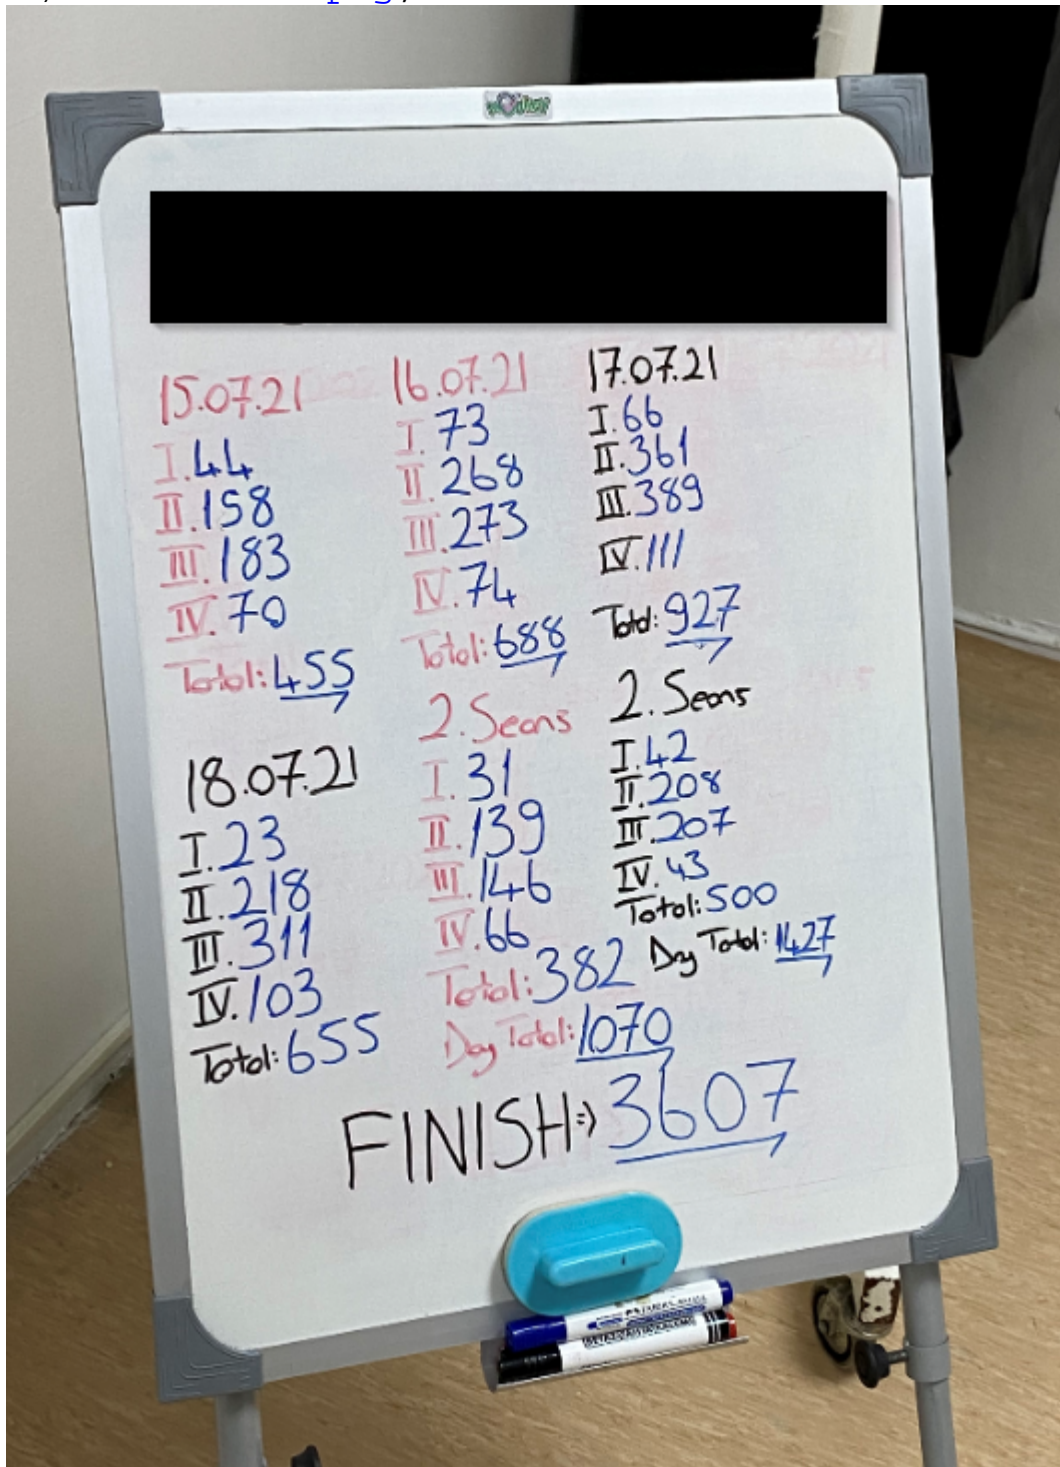 15.07.21
I.44
II.158
III.183
IV.70
Total:455
18.07.21
I.23
II.218
III.311
IV.103
Total:655
16.07.21
I.73
II.268
III.273
IV.74
Total:688
2.Seans
I.31
II.139
III.146
IV.66
Total:382
Day Total:1070
17.07.21
I.66
II.361
III.389
IV.111
Total:927
2.Seans
I.42
II.208
III.207
IV.43
Total:500
Day Total:1427
FINISH=>3607